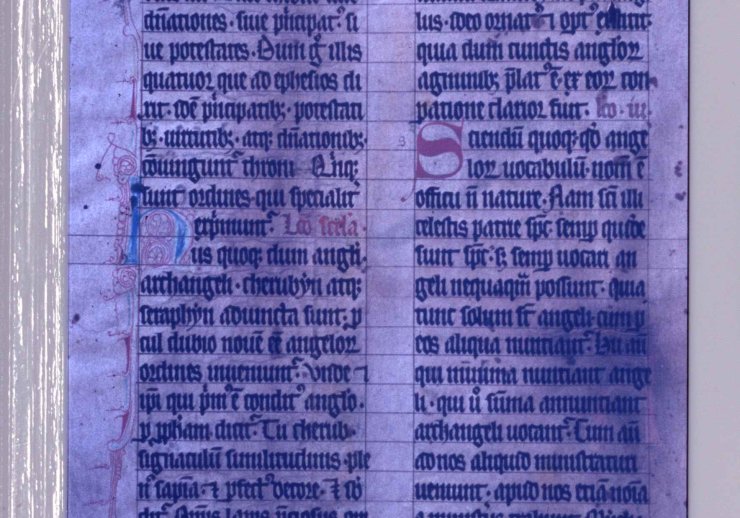 dñationes · siue p̃ncipat᷒ · si
ue potestates. Dum g̃ illis
quatuor que ad ephesios di
xit · idē p̃ncipatib; · potestati
b; · uirtutib; · atq; dñationib; ·
coniungunt᷒ throni · Q̃nq;
sunt ordines · qui specialit᷒
exp̃munt᷒. Lc̃o scd̃a ·
His quoq; dum angli ·
archangeli · cherubyn atq;
seraphyn adiuncta sunt: p
cul dubio nouē eē angelor
ordines inueniunt᷒. Vnde ⁊
ip̃i qui p̃m᷒ ē condit᷒ anglo ·
p ꝓph̃am dicit᷒. Tu cherub
signaculū similitudinis · ple
n᷒ sapīa · ⁊ ꝑfect᷒ decore · ⁊ īo
lus · Ideo ornat᷒ ⁊ opt᷒ extitit:
quia dum cunctis anglor
agminib; p̃lat᷒ ē · ex eor com
paratione clarior fuit. Lc̃o · iii ·
Sciendū quoq; qd̃ ange
lor uocabulū · nom̄ ē
officii ñ nature. Nam sc̃i illi
celestis patrie sp̃c · semp quidē
sunt sp̃c · s; semp uocari an
geli nequaq̃m possunt · quia
tunc solum st̃ angeli · cum p
eos aliqua nuntiant᷒. Hii aũ
qui minima nuntiant ange
li · qui ũ sūma annuntiant
archangeli uocant᷒. Cum aũ
ad nos aliquid ministraturi
ueniunt · apud nos etiā noīa